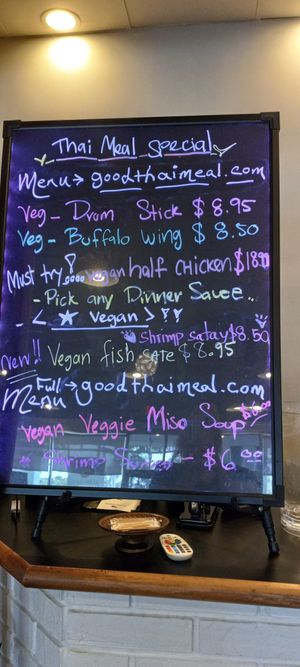 Thai Meal Special
Menu → goodthaimeal.com
Veg - Drum Stick $8.95
Veg - Buffalo wing $8.50
Must try! Vegan half chicken $18.99
- Pick any Dinner Sauce..
- < ★ Vegan > !!
Shrimp satay $8.50
New!! Vegan fish sate $8.95
Full Menu → goodthaimeal.com
Vegan Veggie Miso Soup
Shrimp - $6.00